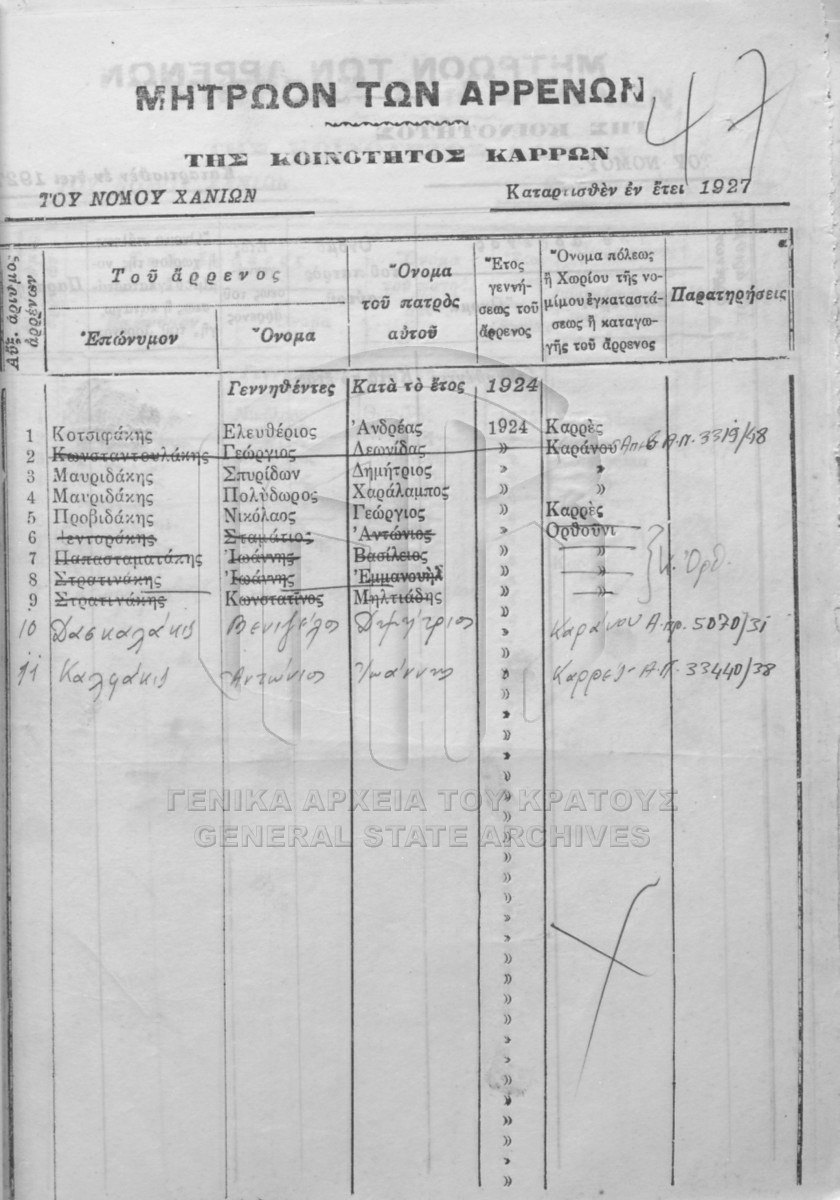 47
ΜΗΤΡΩΟΝ ΤΩΝ ΑΡΡΕΝΩΝ
ΤΗΣ ΚΟΙΝΟΤΗΤΟΣ ΚΑΡΡΩΝ
ΤΟΥ ΝΟΜΟΥ ΧΑΝΙΩΝ Καταρτισθὲν ἐν ἔτει 1927
Αὔξ. ἀριθμὸς ἀρρένων
Τοῦ ἄρρενος
Ἐπώνυμον Ὄνομα
Ὄνομα τοῦ πατρὸς αὐτοῦ
Ἔτος γεννήσεως τοῦ ἄρρενος
Ὄνομα πόλεως ἢ Χωρίου τῆς νομίμου ἐγκαταστάσεως ἢ καταγωγῆς τοῦ ἄρρενος
Παρατηρήσεις
Γεννηθέντες Κατὰ τὸ ἔτος 1924
1 Κοτσιφάκης Ἐλευθέριος Ἀνδρέας 1924 Καρρὲς
2 Κωνσταντουλάκης Γεώργιος Λεωνίδας » Καράνου Α.Π. 3319/48
3 Μαυριδάκης Σπυρίδων Δημήτριος » »
4 Μαυριδάκης Πολύδωρος Χαράλαμπος » »
5 Προβιδάκης Νικόλαος Γεώργιος » Καρρὲς
6 Σταμάτιος Ἀντώνιος » Ὀρθοῦνι
7 Παπασταματάκης Ἰωάννης Βασίλειος » »
8 Στρατινάκης Ἰωάννης Ἐμμανουὴλ » » Κ. Ὀρθ.
9 Στρατινάκης Κωνστατῖνος Μηλτιάδης » »
10 Δασκαλάκις Βενιζέλος Δημήτριος » Καράνου Α.πρ. 5070/31
11 Καλφάκις Ἀντώνιος Ἰωάννης » Καρρές Α.Π. 33440/38
ΓΕΝΙΚΑ ΑΡΧΕΙΑ ΤΟΥ ΚΡΑΤΟΥΣ
GENERAL STATE ARCHIVES